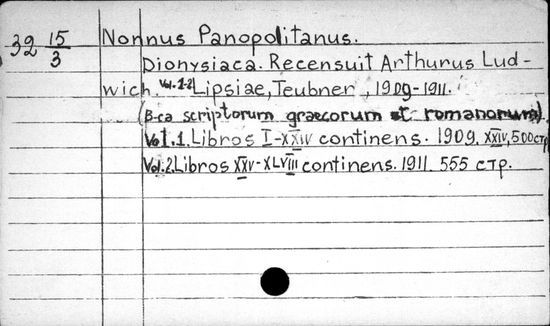 32 15/3 Nonnus Panopolitanus.
Dionysiaca. Recensuit Arthurus Lud-
wich. Vol. 1-2 Lipsiae, Teubner, 1909-1911.
(B-ca scriptorum graecorum et romanorum).
Vol. 1. Libros I-XXIV continens. 1909. XXIV, 500 стр
Vol. 2. Libros XXV-XLVIII continens. 1911. 555 стр.